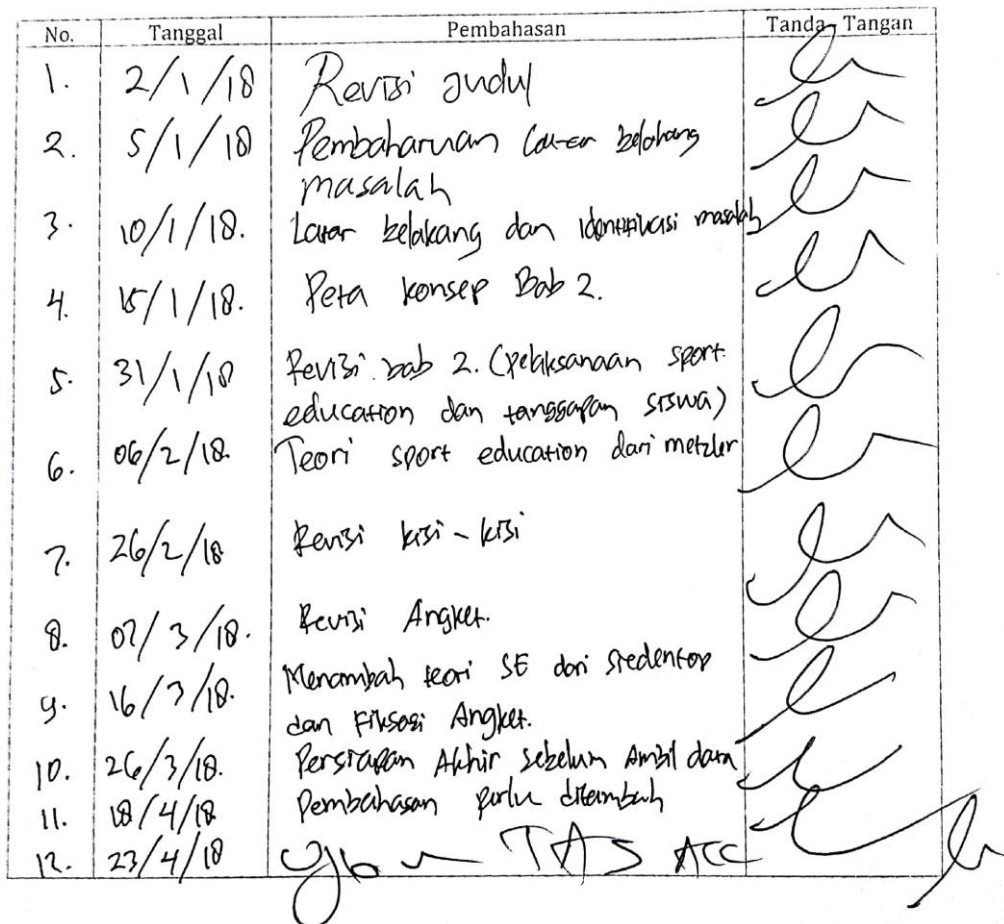 No. Tanggal Pembahasan Tanda Tangan
1. 2/1/18 Revisi Judul
2. 5/1/18 Pembaharuan Latar belakang
masalah
3. 10/1/18. Latar belakang dan identifikasi masalah
4. 15/1/18. Peta konsep Bab 2.
5. 31/1/18 Revisi bab 2. (pelaksanaan sport
education dan tanggapan siswa)
6. 06/2/18. Teori sport education dari metzler
7. 26/2/18 Revisi kisi-kisi
8. 07/3/18. Revisi Angket.
9. 16/3/18. Menambah teori SE dari siedentop
dan Fiksasi Angket.
10. 26/3/18. Persiapan Akhir sebelum Ambil data
11. 18/4/18 Pembahasan perlu ditambah
12. 23/4/18 TAS ACC